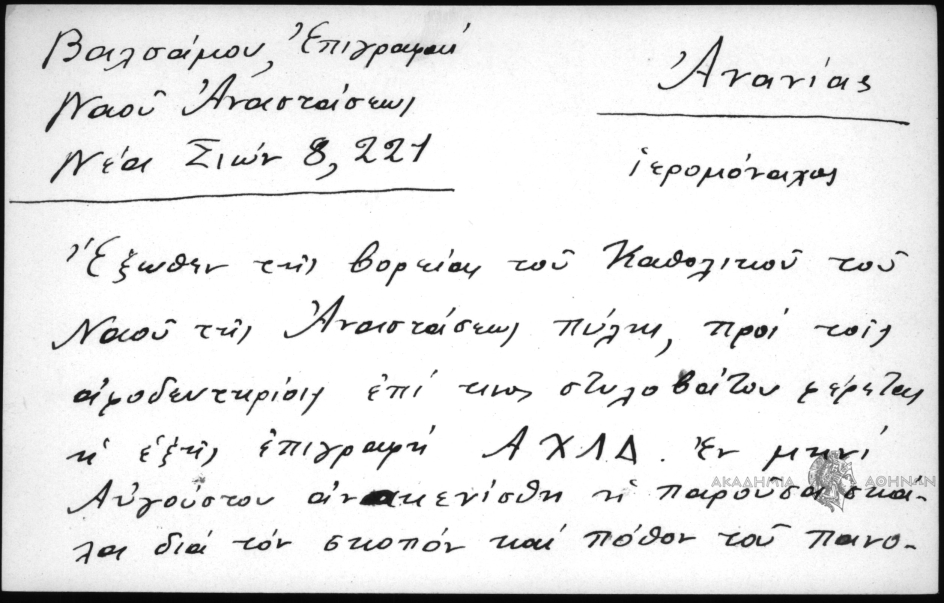 Βαλσάμου, Ἐπιγραφαί
Ναοῦ Ἀναστάσεως
Νέα Σιών 8, 221
Ἀνανίας
ἱερομόναχος
Ἔξωθεν τῆς βορείας τοῦ Καθολικοῦ τοῦ
Ναοῦ τῆς Ἀναστάσεως πύλης, πρὸς τοῖς
ἐπί τινος στυλοβάτου φέρεται
ἡ ἑξῆς ἐπιγραφή ΑΧΛΔ. Ἐν μηνί
Αὐγούστου ἀνακενίσθη ἡ παροῦσα σκά-
λα διά τόν σκοπόν καί πόθον τοῦ πανο-
ΑΚΑΔΗΜΙΑ ΑΘΗΝΩΝ